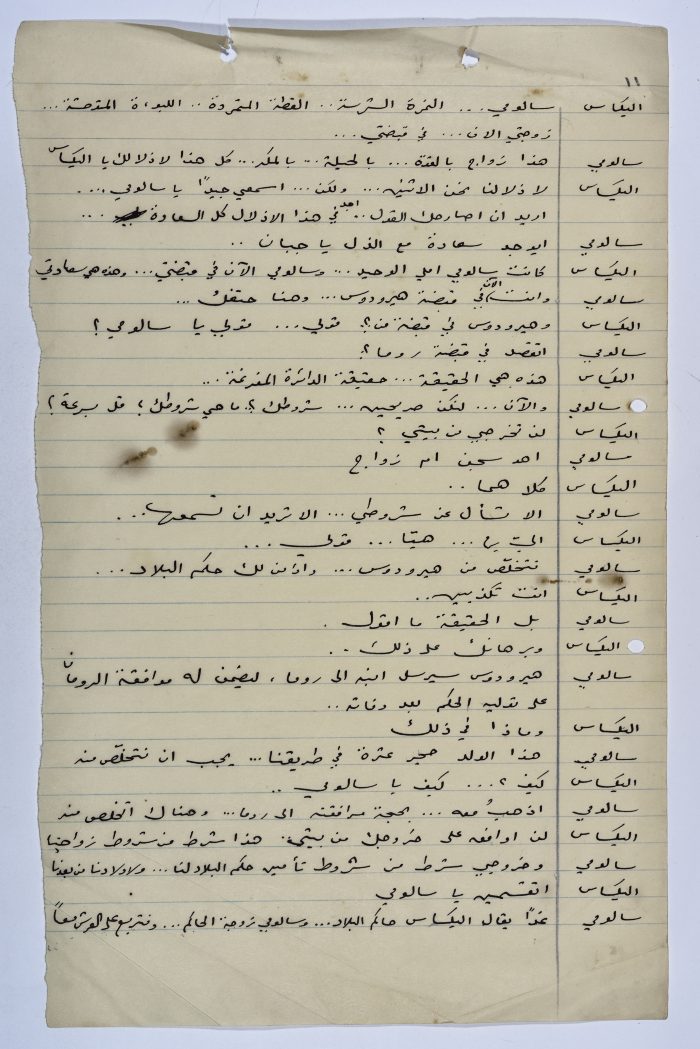 ١١
اليكساس سالومي ... النمرة الشرسة .. القطة المتمردة .. اللبوءة المتوحشة ...
زوجتي الان ... في قبضتي ...
سالومي هذا زواج بالقوة ... بالحيلة ... بالمكر ... كل هذا لاذلالك يا اليكساس
اليكساس لاذلالنا نحن الاثنين ... ولكن ... اسمعي جيدًا يا سالومي ...
اريد ان اصارحك القول .. اجد في هذا الاذلال كل السعادة ...
سالومي ايوجد سعادة مع الذل يا جبان ..
اليكساس كانت سالومي املي الوحيد ... وسالومي الآن في قبضتي ... وهذه هي سعادتي
سالومي وانت الآن في قبضة هيرودوس ... وهنا حتفك ...
اليكساس وهيرودوس في قبضة من ؟. قولي ... قولي يا سالومي ؟
سالومي اتقصد في قبضة روما ؟
اليكساس هذه هي الحقيقة ... حقيقة الدائرة المفرغة ...
سالومي والآن ... لنكن صريحين ... شروطك ؟. ما هي شروطك ؟ قل بسرعة ؟
اليكساس لن تخرجي من بيتي ؟
سالومي اهو سجن ام زواج
اليكساس كلا هما ..
سالومي الا تسأل عن شروطي ... الا تريد ان تسمعها ...
اليكساس هيّا ... قولي ...
سالومي نتخلّص من هيرودوس ... واؤمن لك حكم البلاد ...
اليكساس انت تكذبين ..
سالومي بل الحقيقة ما اقول .
اليكساس وبرهانك على ذلك ..
سالومي هيرودوس سيرسل ابنه الى روما ، ليضمن له موافقة الرومان
على توليه الحكم بعد وفاته ..
اليكساس وماذا في ذلك
سالومي هذا الولد حجر عثرة في طريقنا ... يجب ان نتخلّص منه
اليكساس كيف ؟ ... كيف يا سالومي ..
سالومي اذهبُ معه ... بحجة مرافقته الى روما ... وهناك اتخلص منه
اليكساس لن اوافق على خروجك من بيتي .. هذا شرط من شروط زواجنا
سالومي وخروجي شرط من شروط تأمين حكم البلاد لنا ... ولاولادنا من بعدنا
اليكساس اتقسمين يا سالومي
سالومي غدًا يقال اليكساس حاكم البلاد ... وسالومي زوجة الحاكم ... ونتربع على العرش معاً